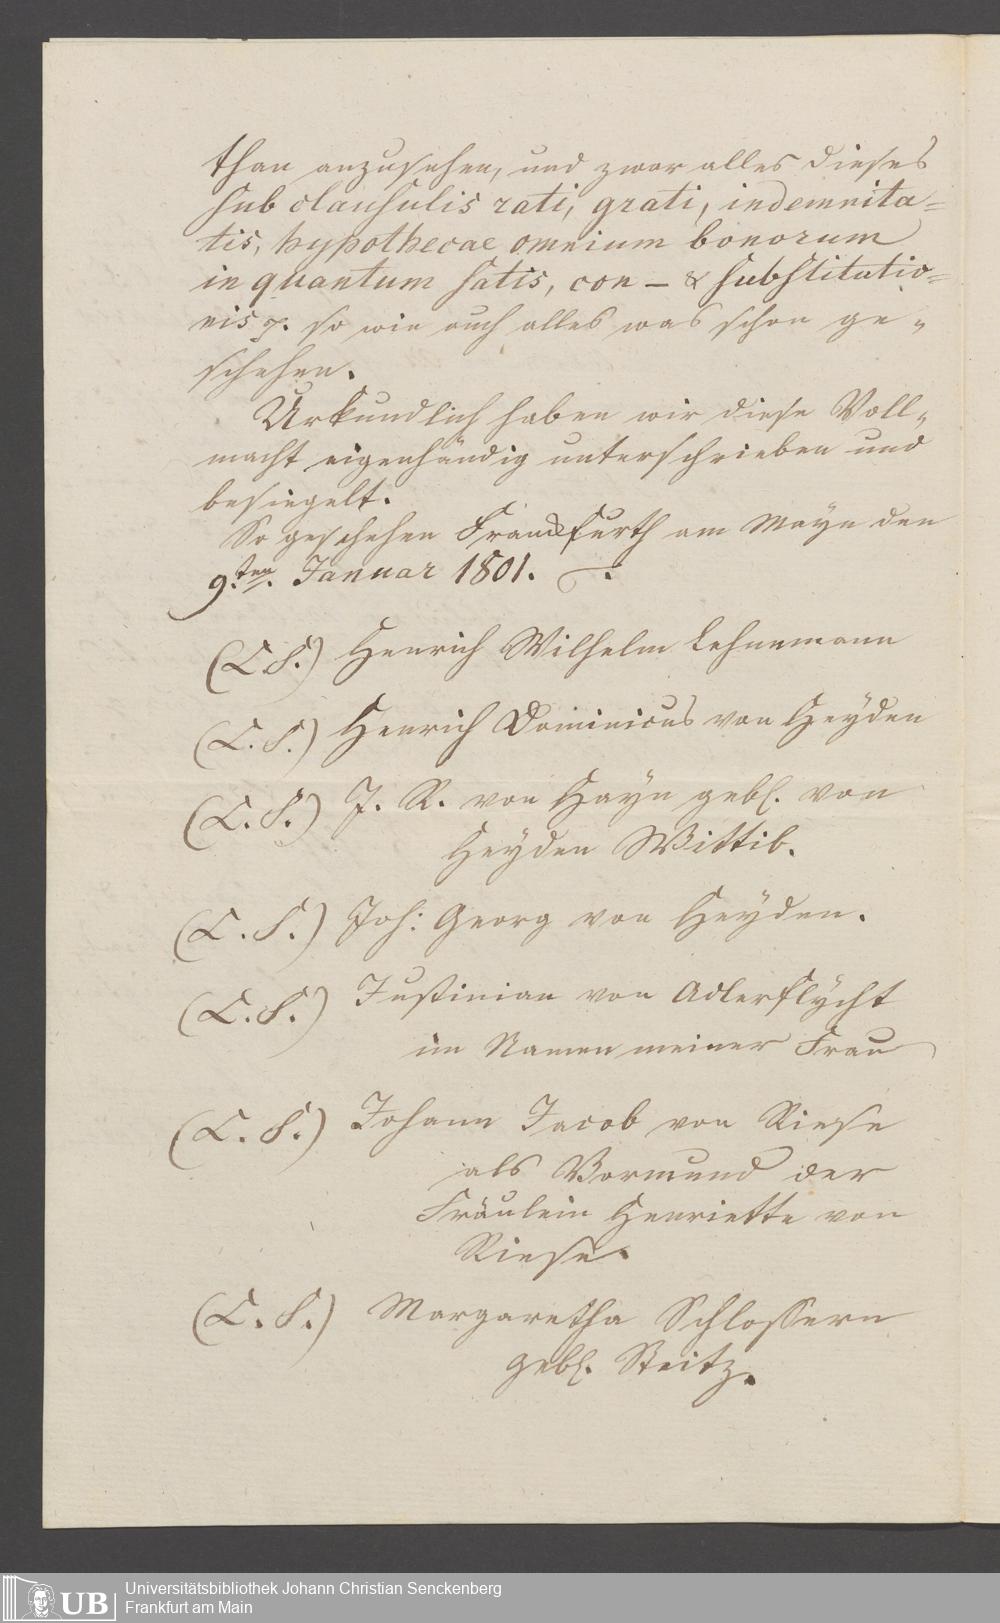 than anzusehen, und zwar alles dieses
sub clausulis rati, grati, indemnita=
tis, hypothecae omnium bonorum
in quantum satis, con- & substitutio=
nis p. so wie auch alles was schon ge„
schehen.
Urkundlich haben wir diese Voll„
macht eigenhändig unterschrieben und
besiegelt.
So geschehen Franckfurth am Mayn den
9.ten Januar 1801.
(L. S.) Henrich Wilhelm Lehnemann
(L. S.) Henrich Dominicus von Heyden
(L. S.) J. R. von Hayn geb. von
Heyden Wittib.
(L. S.) Joh: Georg von Heyden.
(L. S.) Justinian von Adlerflÿcht
im Namen meiner Frau
(L. S.) Johann Jacob von Riese
als Vormund der
Fräulein Henriette von
Riese.
(L. S.) Margaretha Schlossern
geb. Steitz.
Universitätsbibliothek Johann Christian Senckenberg
UB Frankfurt am Main